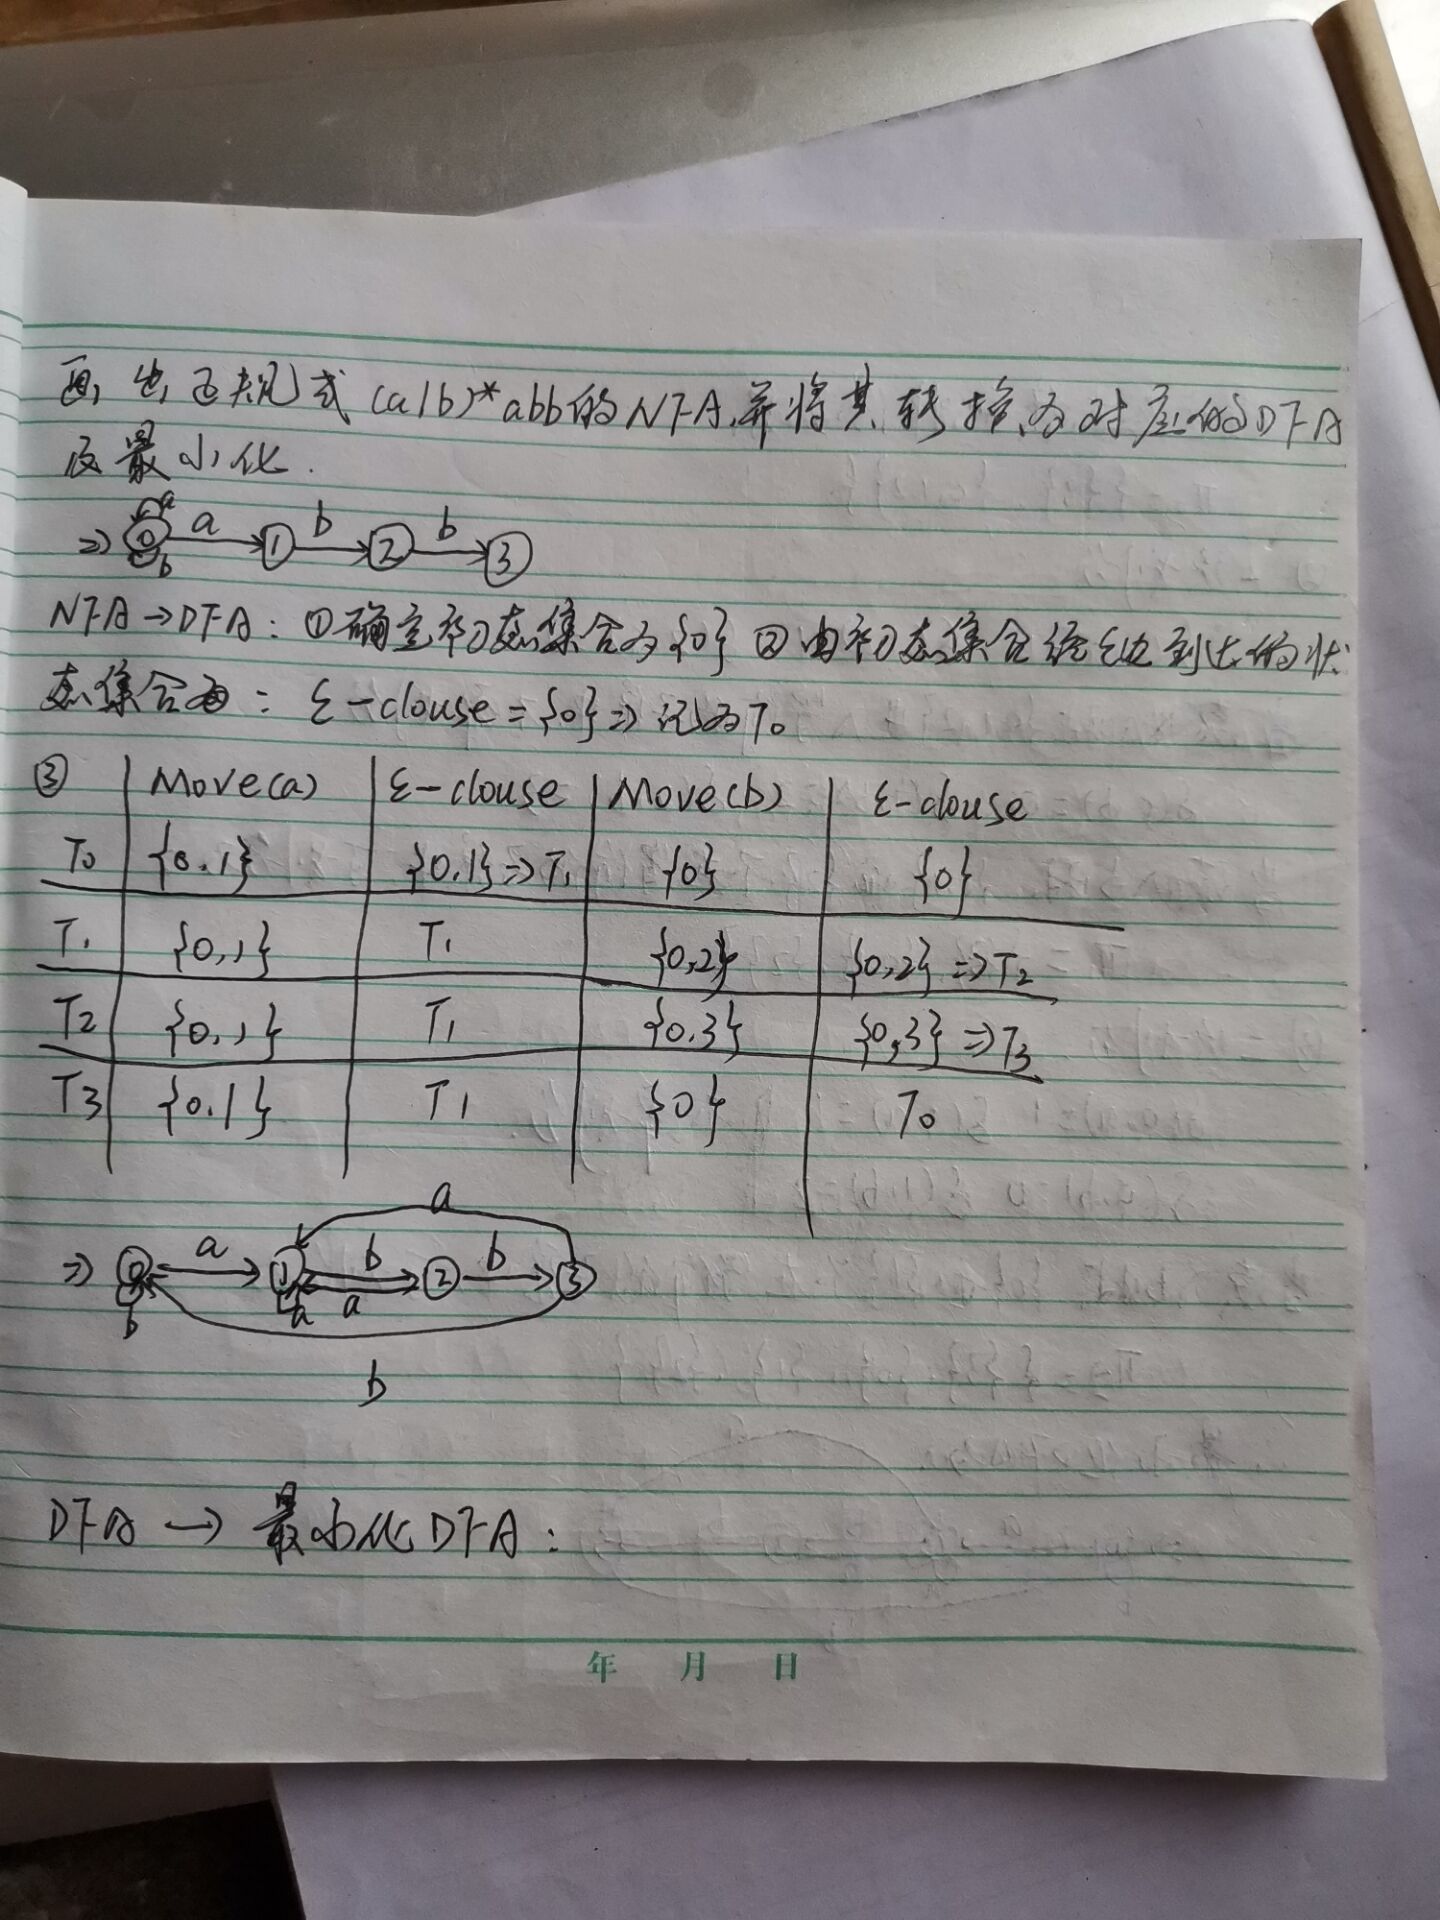 画出正规式(a|b)*abb的NFA,并将其转换为对应的DFA
及最小化.
⇒ 0 a 1 b 2 b 3
a
b
NFA→DFA: ①确定初态集合为{0} ②由初态集合经ε边到达的状
态集合为: ε-clouse={0}⇒记为T₀
③ Move(a) ε-clouse Move(b) ε-clouse
T₀ {0.1} {0.1}⇒T₁ {0} {0}
T₁ {0,1} T₁ {0,2} {0,2}⇒T₂
T₂ {0,1} T₁ {0.3} {0,3}⇒T₃
T₃ {0.1} T₁ {0} T₀
a
⇒ 0 a 1 b 2 b 3
b a a
b
DFA → 最小化DFA:
年 月 日